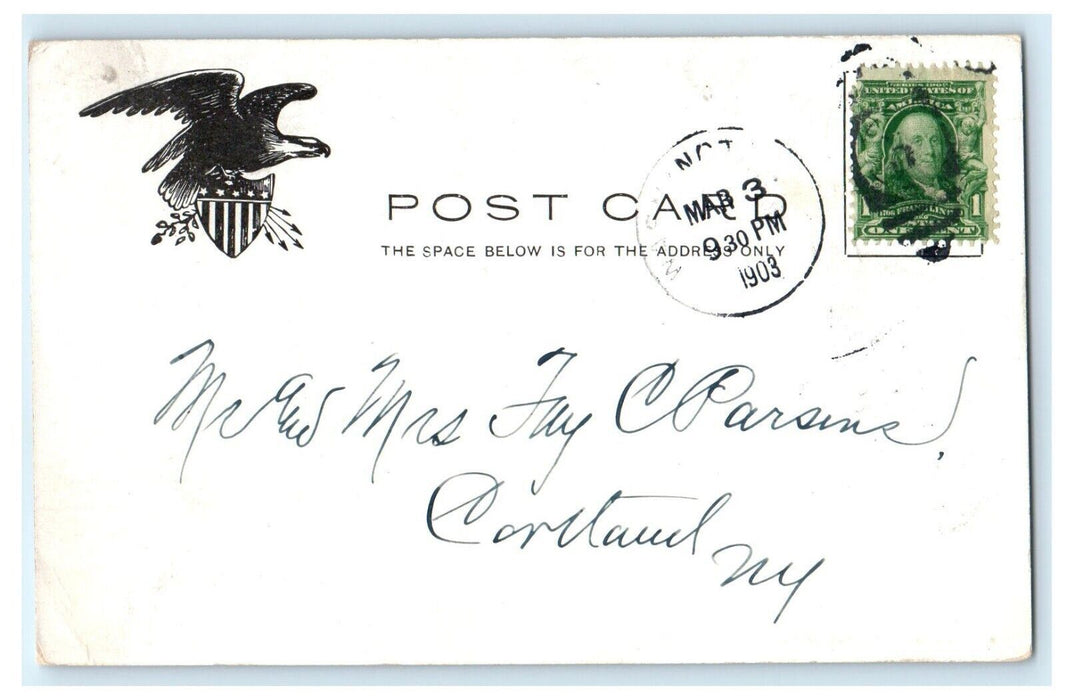 POST CARD
THE SPACE BELOW IS FOR THE ADDRESS ONLY
NGT
MAR 3
9 30 PM
1903
SERIES 1902
UNITED STATES OF
AMERICA
FRANKLIN
1 1
Mr and Mrs Fay C Parsons,
Cortland
NY